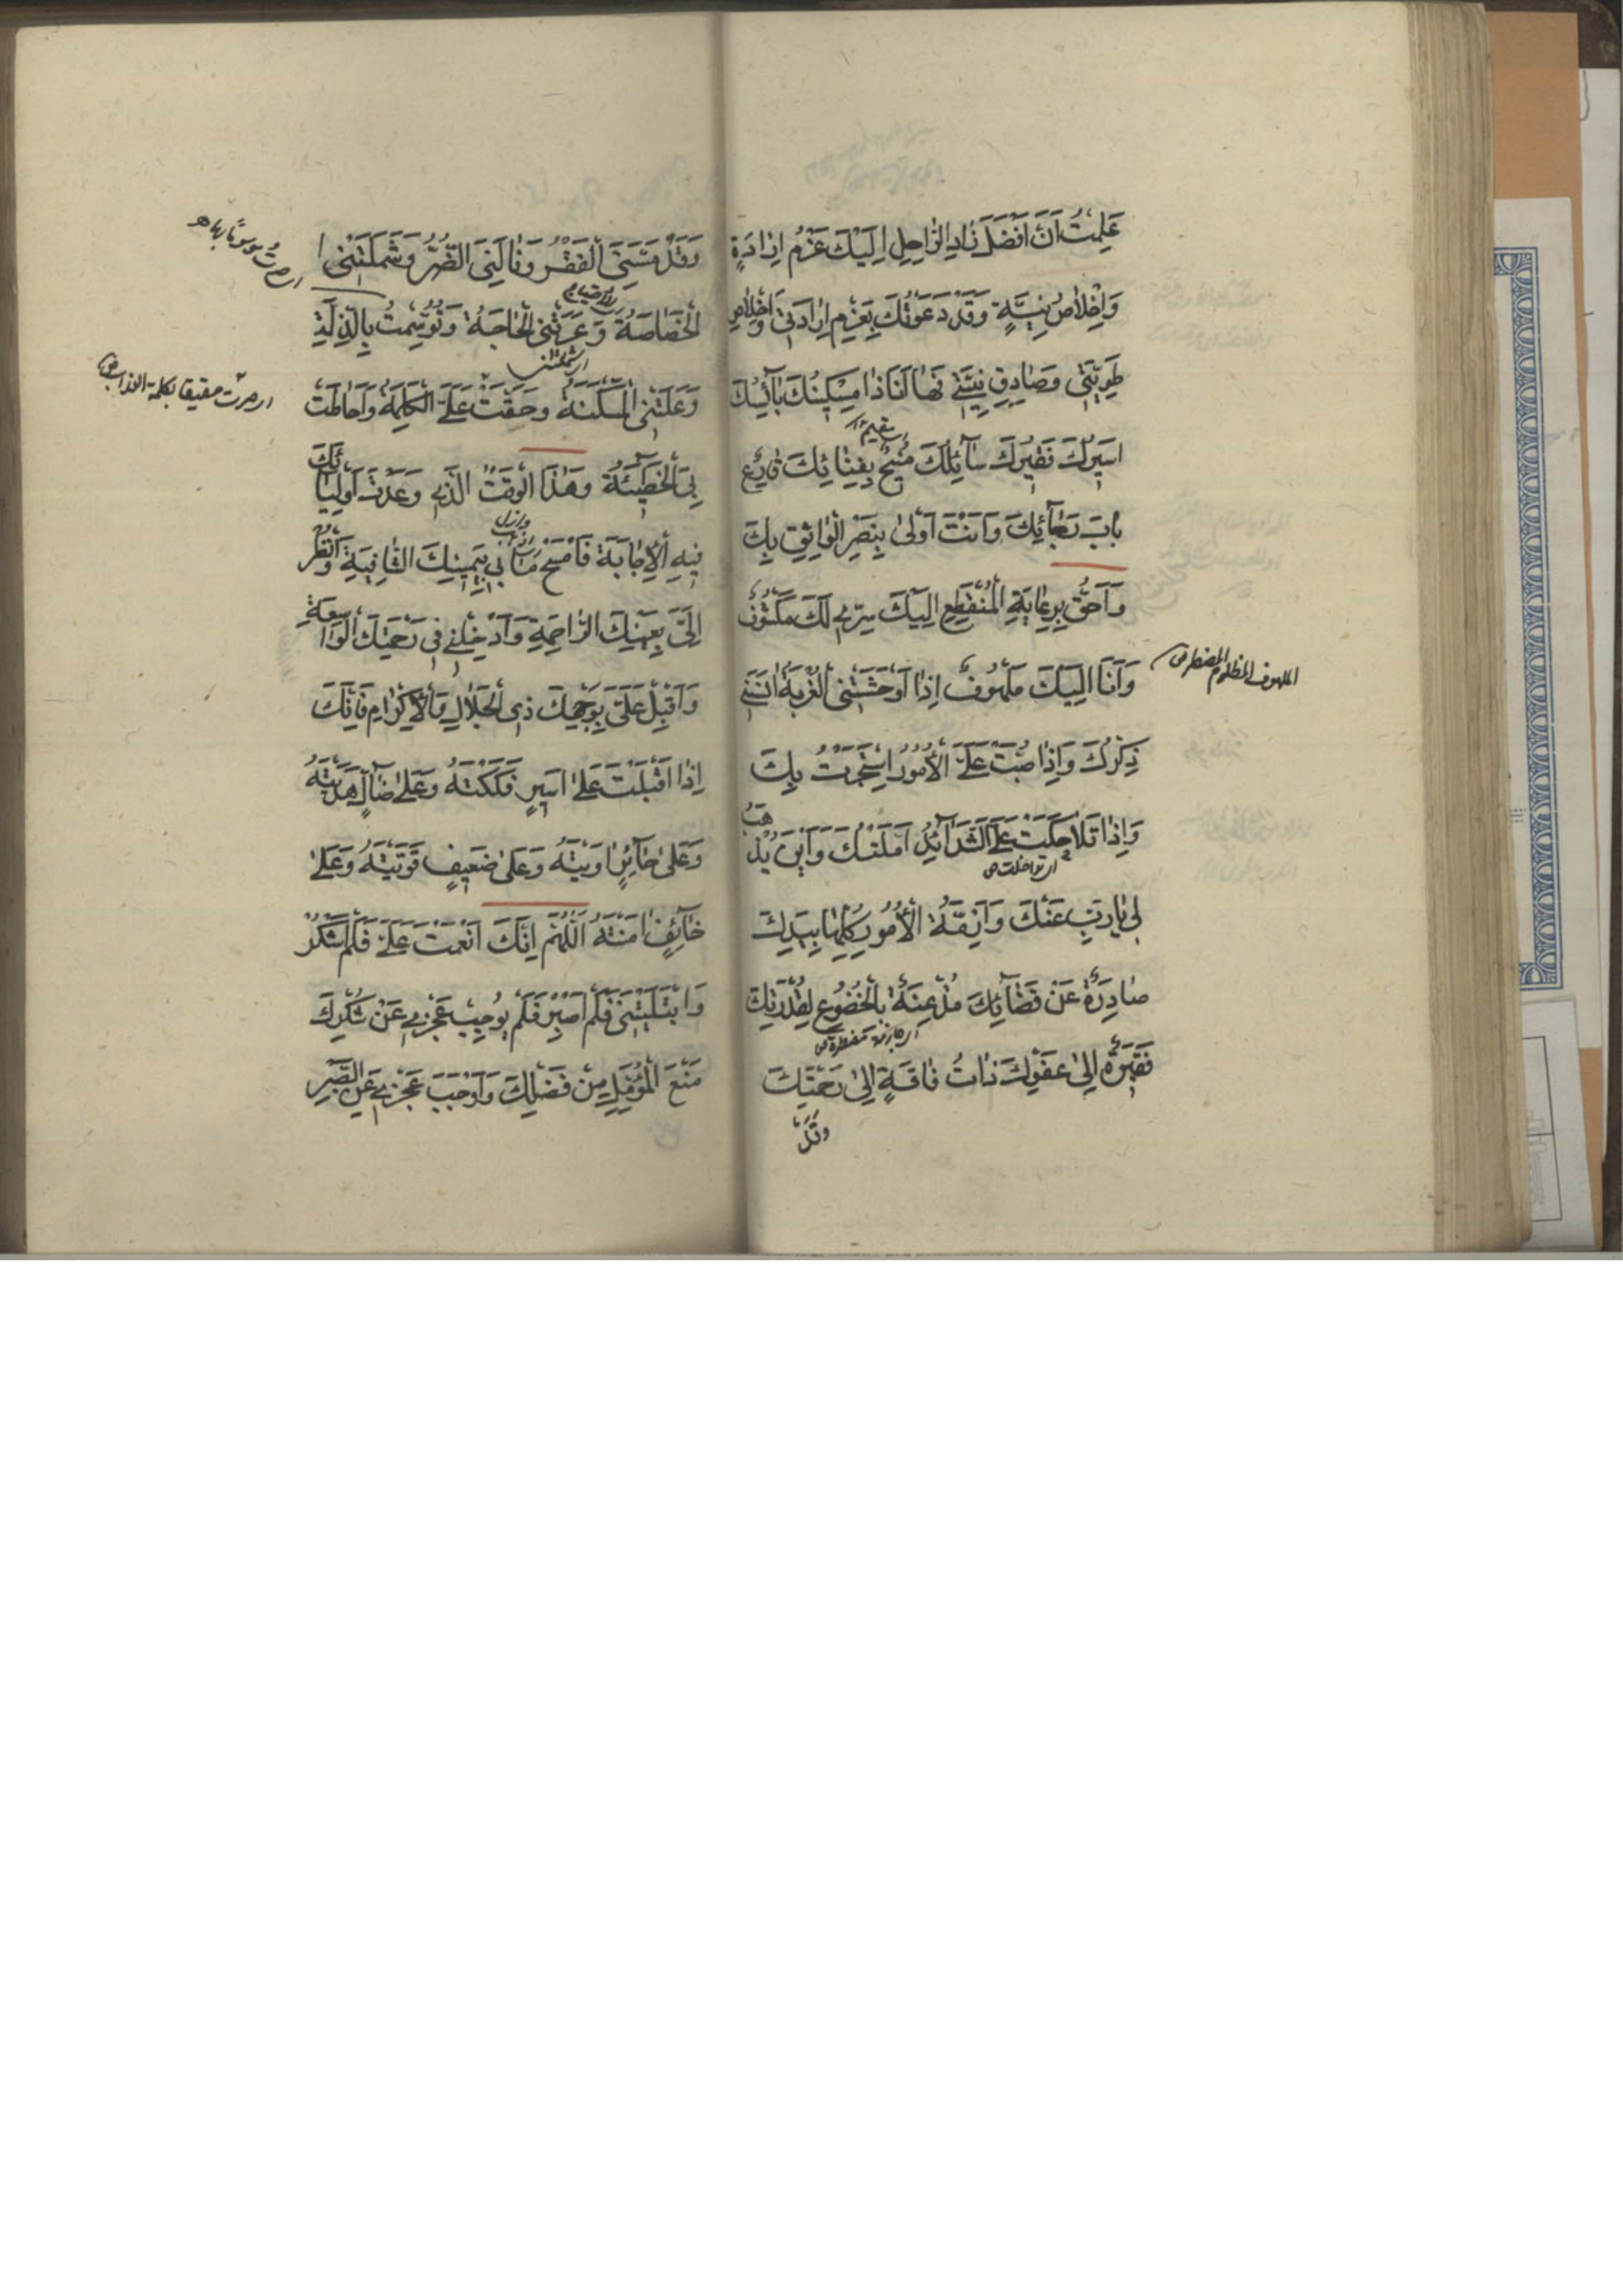 عَلِمْتُ اَنَّ اَفْضَلَ زَادِ الرَّاحِلِ اِلَيْكَ عَزْمُ اِرَادَةٍ
وَاِخْلَاصُ نِيَّةٍ وَقَدْ دَعَوْتُكَ بِعَزْمِ اِرَادَتِي وَاِخْلَاصِ
طَوِيَّتِي وَصَادِقِ نِيَّتِي فَهَا اَنَا ذَا مِسْكِينُكَ بَائِسُكَ
اَسِيرُكَ فَقِيرُكَ سَائِلُكَ مُنِيخٌ بِفِنَائِكَ قَارِعٌ
بَابَ رَجَائِكَ وَاَنْتَ اَوْلَى بِنَصْرِ الْوَاثِقِ بِكَ
وَاَحَقُّ بِرِعَايَةِ الْمُنْقَطِعِ اِلَيْكَ سِرِّي لَكَ مَكْشُوفٌ
وَاَنَا اِلَيْكَ مَلْهُوفٌ اِذَا اَوْحَشَتْنِي الْغُرْبَةُ اٰنَسَنِي
الملهوف المظلوم المضطر ص
ذِكْرُكَ وَاِذَا صُبَّتْ عَلَيَّ الْاُمُورُ اسْتَجَرْتُ بِكَ
وَاِذَا تَلَاحَكَتْ عَلَيَّ الشَّدَائِدُ اَمَّلْتُكَ وَاَيْنَ يُذْهَبُ
اى تداخلت ص
بِي يَا رَبِّ عَنْكَ وَاَزِمَّةُ الْاُمُورِ كُلِّهَا بِيَدِكَ
صَادِرَةً عَنْ قَضَائِكَ مُذْعِنَةً بِالْخُضُوعِ لِقُدْرَتِكَ
فَقِيرَةً اِلَى عَفْوِكَ ذَاتُ فَاقَةٍ اِلَى رَحْمَتِكَ
وَقَدْ
وَقَدْ مَسَّنِيَ الْفَقْرُ وَنَالَنِيَ الضُّرُّ وَشَمِلَتْنِي
الْخَصَاصَةُ وَعَرَتْنِي الْحَاجَةُ وَتَوَسَّمْتُ بِالذِّلَّةِ
وَعَلَتْنِي الْمَسْكَنَةُ وَحَقَّتْ عَلَيَّ الْكَلِمَةُ وَاَحَاطَتْ
بِيَ الْخَطِيئَةُ وَهٰذَا الْوَقْتُ الَّذِي وَعَدْتَ اَوْلِيَائَكَ
فِيهِ الْاِجَابَةَ فَامْسَحْ مَا بِي بِيَمِينِكَ الشَّافِيَةِ وَانْظُرْ
اِلَيَّ بِعَيْنِكَ الرَّاحِمَةِ وَاَدْخِلْنِي فِي رَحْمَتِكَ الْوَاسِعَةِ
وَاَقْبِلْ عَلَيَّ بِوَجْهِكَ ذِي الْجَلَالِ وَالْاِكْرَامِ فَاِنَّكَ
اِذَا اَقْبَلْتَ عَلَى اَسِيرٍ فَكَكْتَهُ وَعَلَى ضَالٍّ هَدَيْتَهُ
وَعَلَى حَائِرٍ اٰوَيْتَهُ وَعَلَى ضَعِيفٍ قَوَّيْتَهُ وَعَلَى
خَائِفٍ اٰمَنْتَهُ اَللّٰهُمَّ اِنَّكَ اَنْعَمْتَ عَلَيَّ فَلَمْ اَشْكُرْ
وَابْتَلَيْتَنِي فَلَمْ اَصْبِرْ فَلَمْ يُوجِبْ عَجْزِي عَنْ شُكْرِكَ
مَنْعَ الْمُؤَمَّلِ مِنْ فَضْلِكَ وَاَوْجَبَ عَجْزِي عَنِ الصَّبْرِ